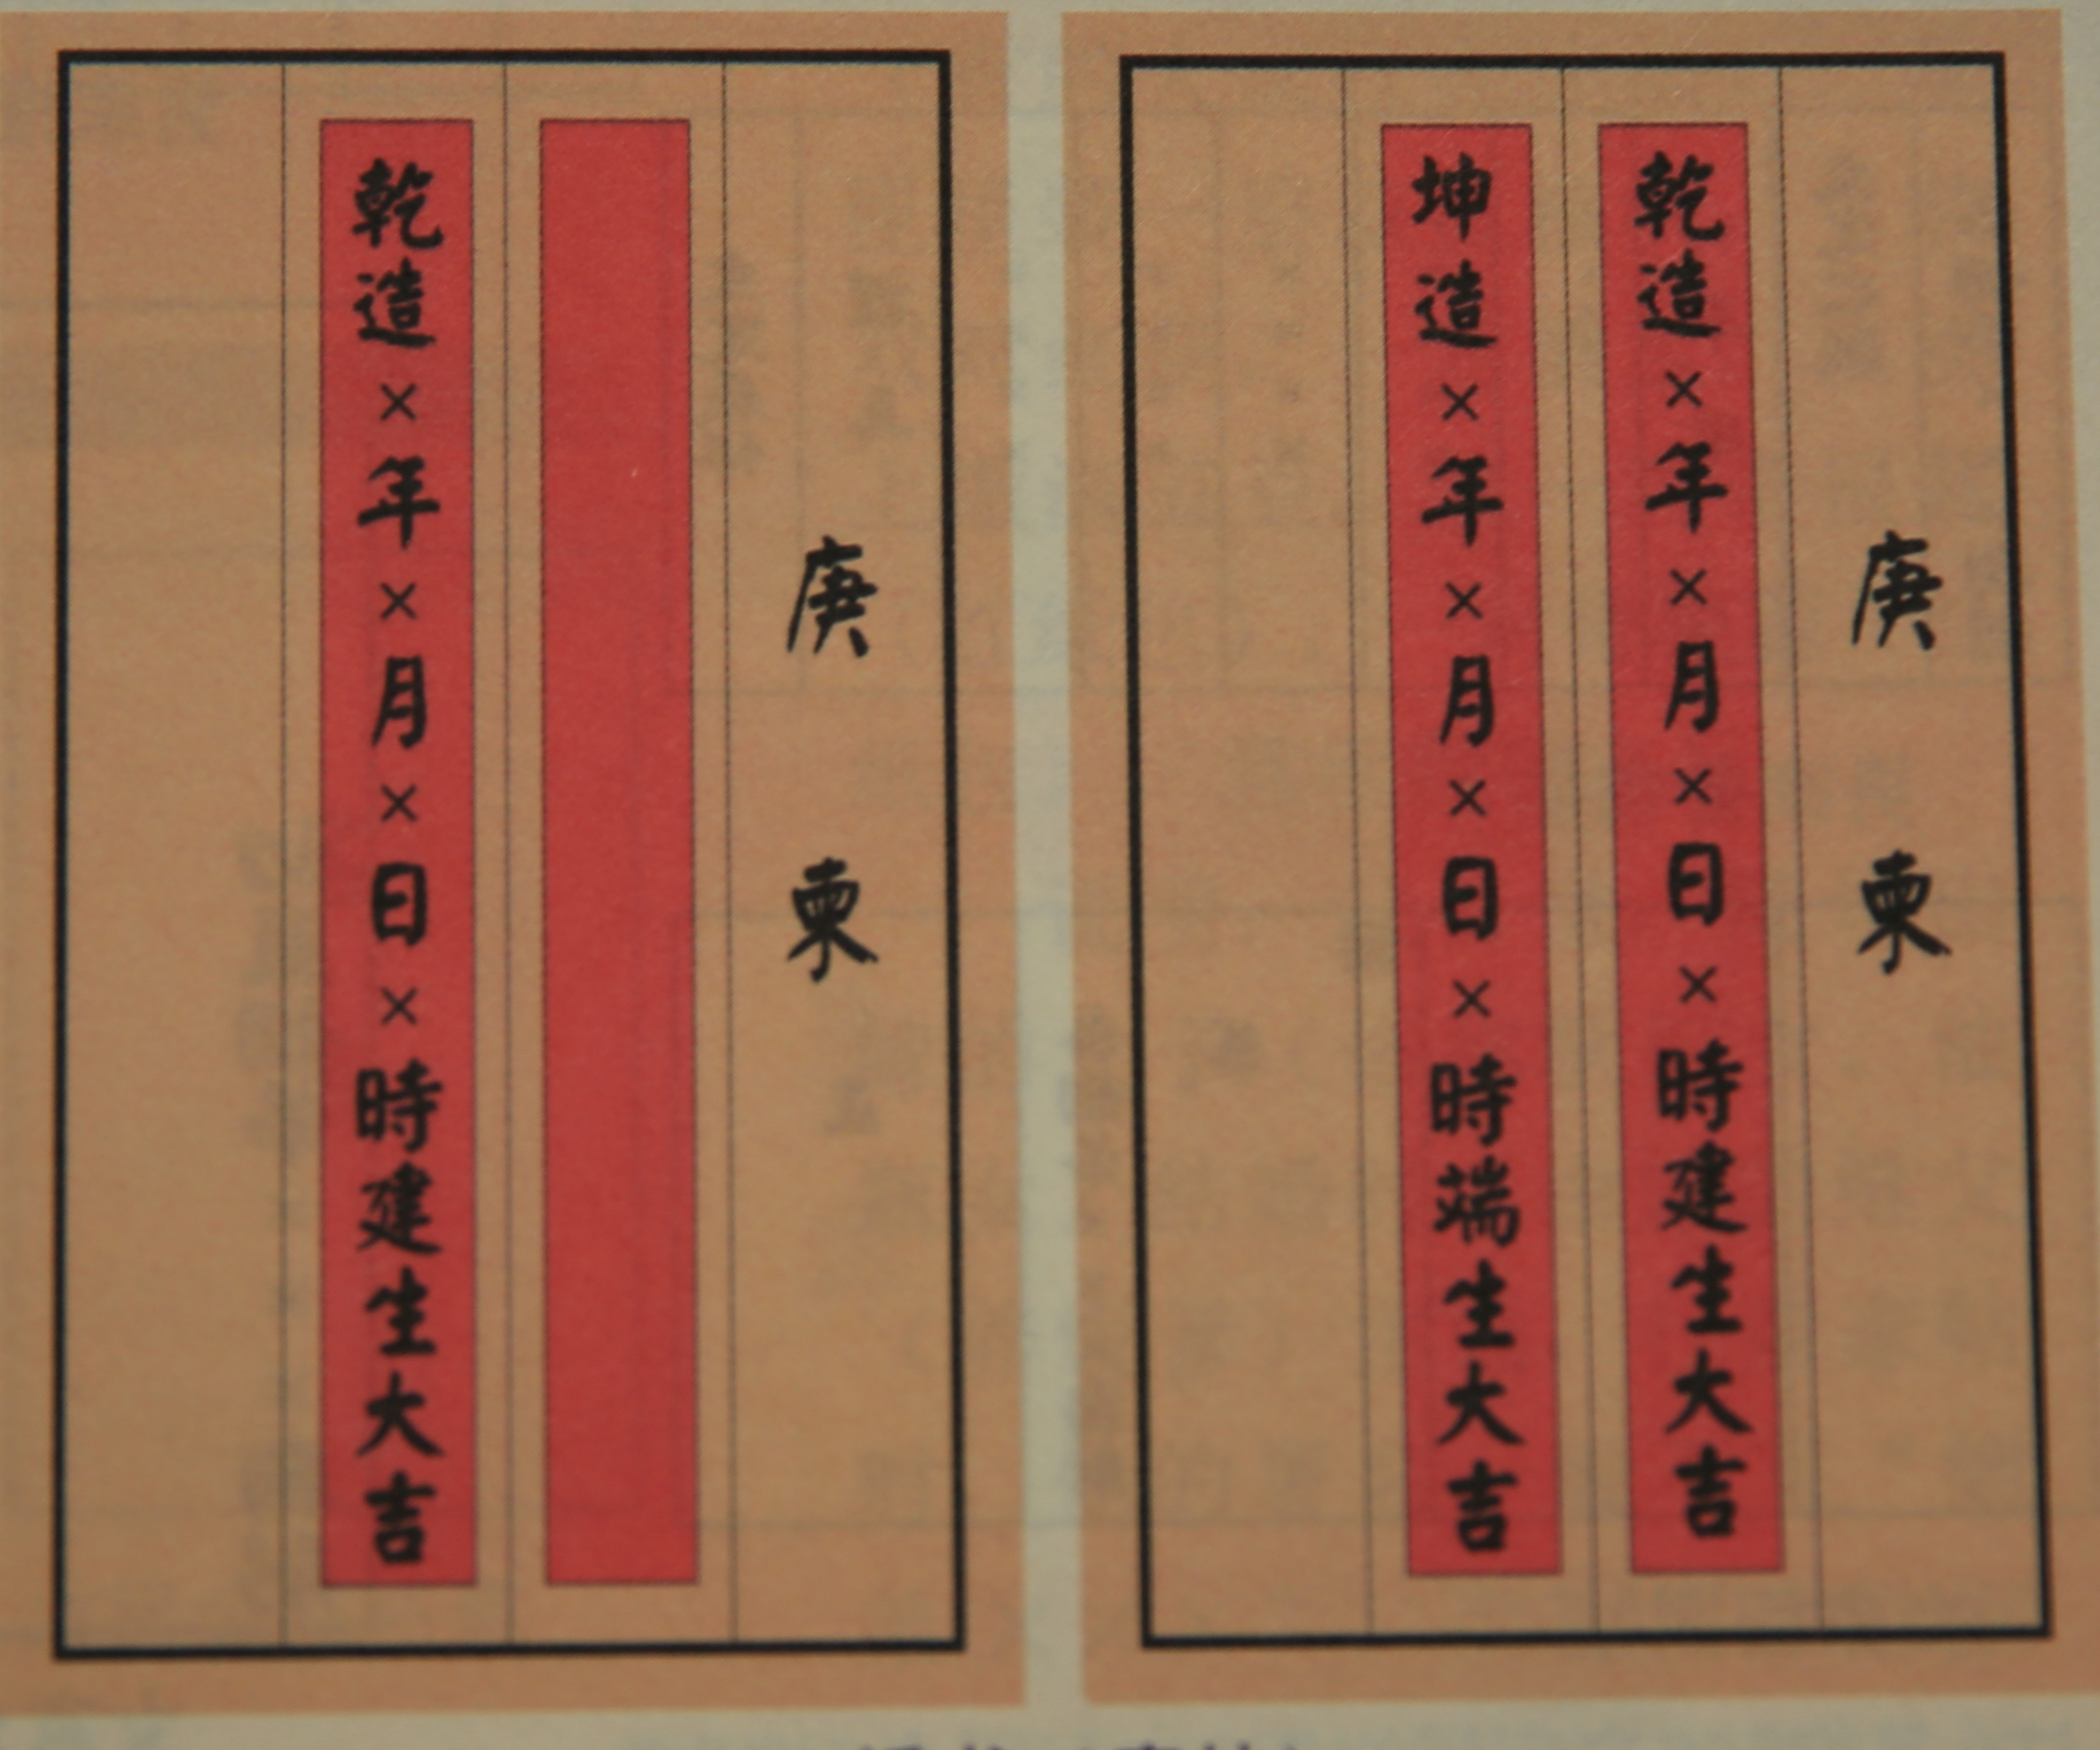 庚
柬
乾造×年×月×日×時建生大吉
坤造×年×月×日×時端生大吉
庚
柬
乾造×年×月×日×時建生大吉